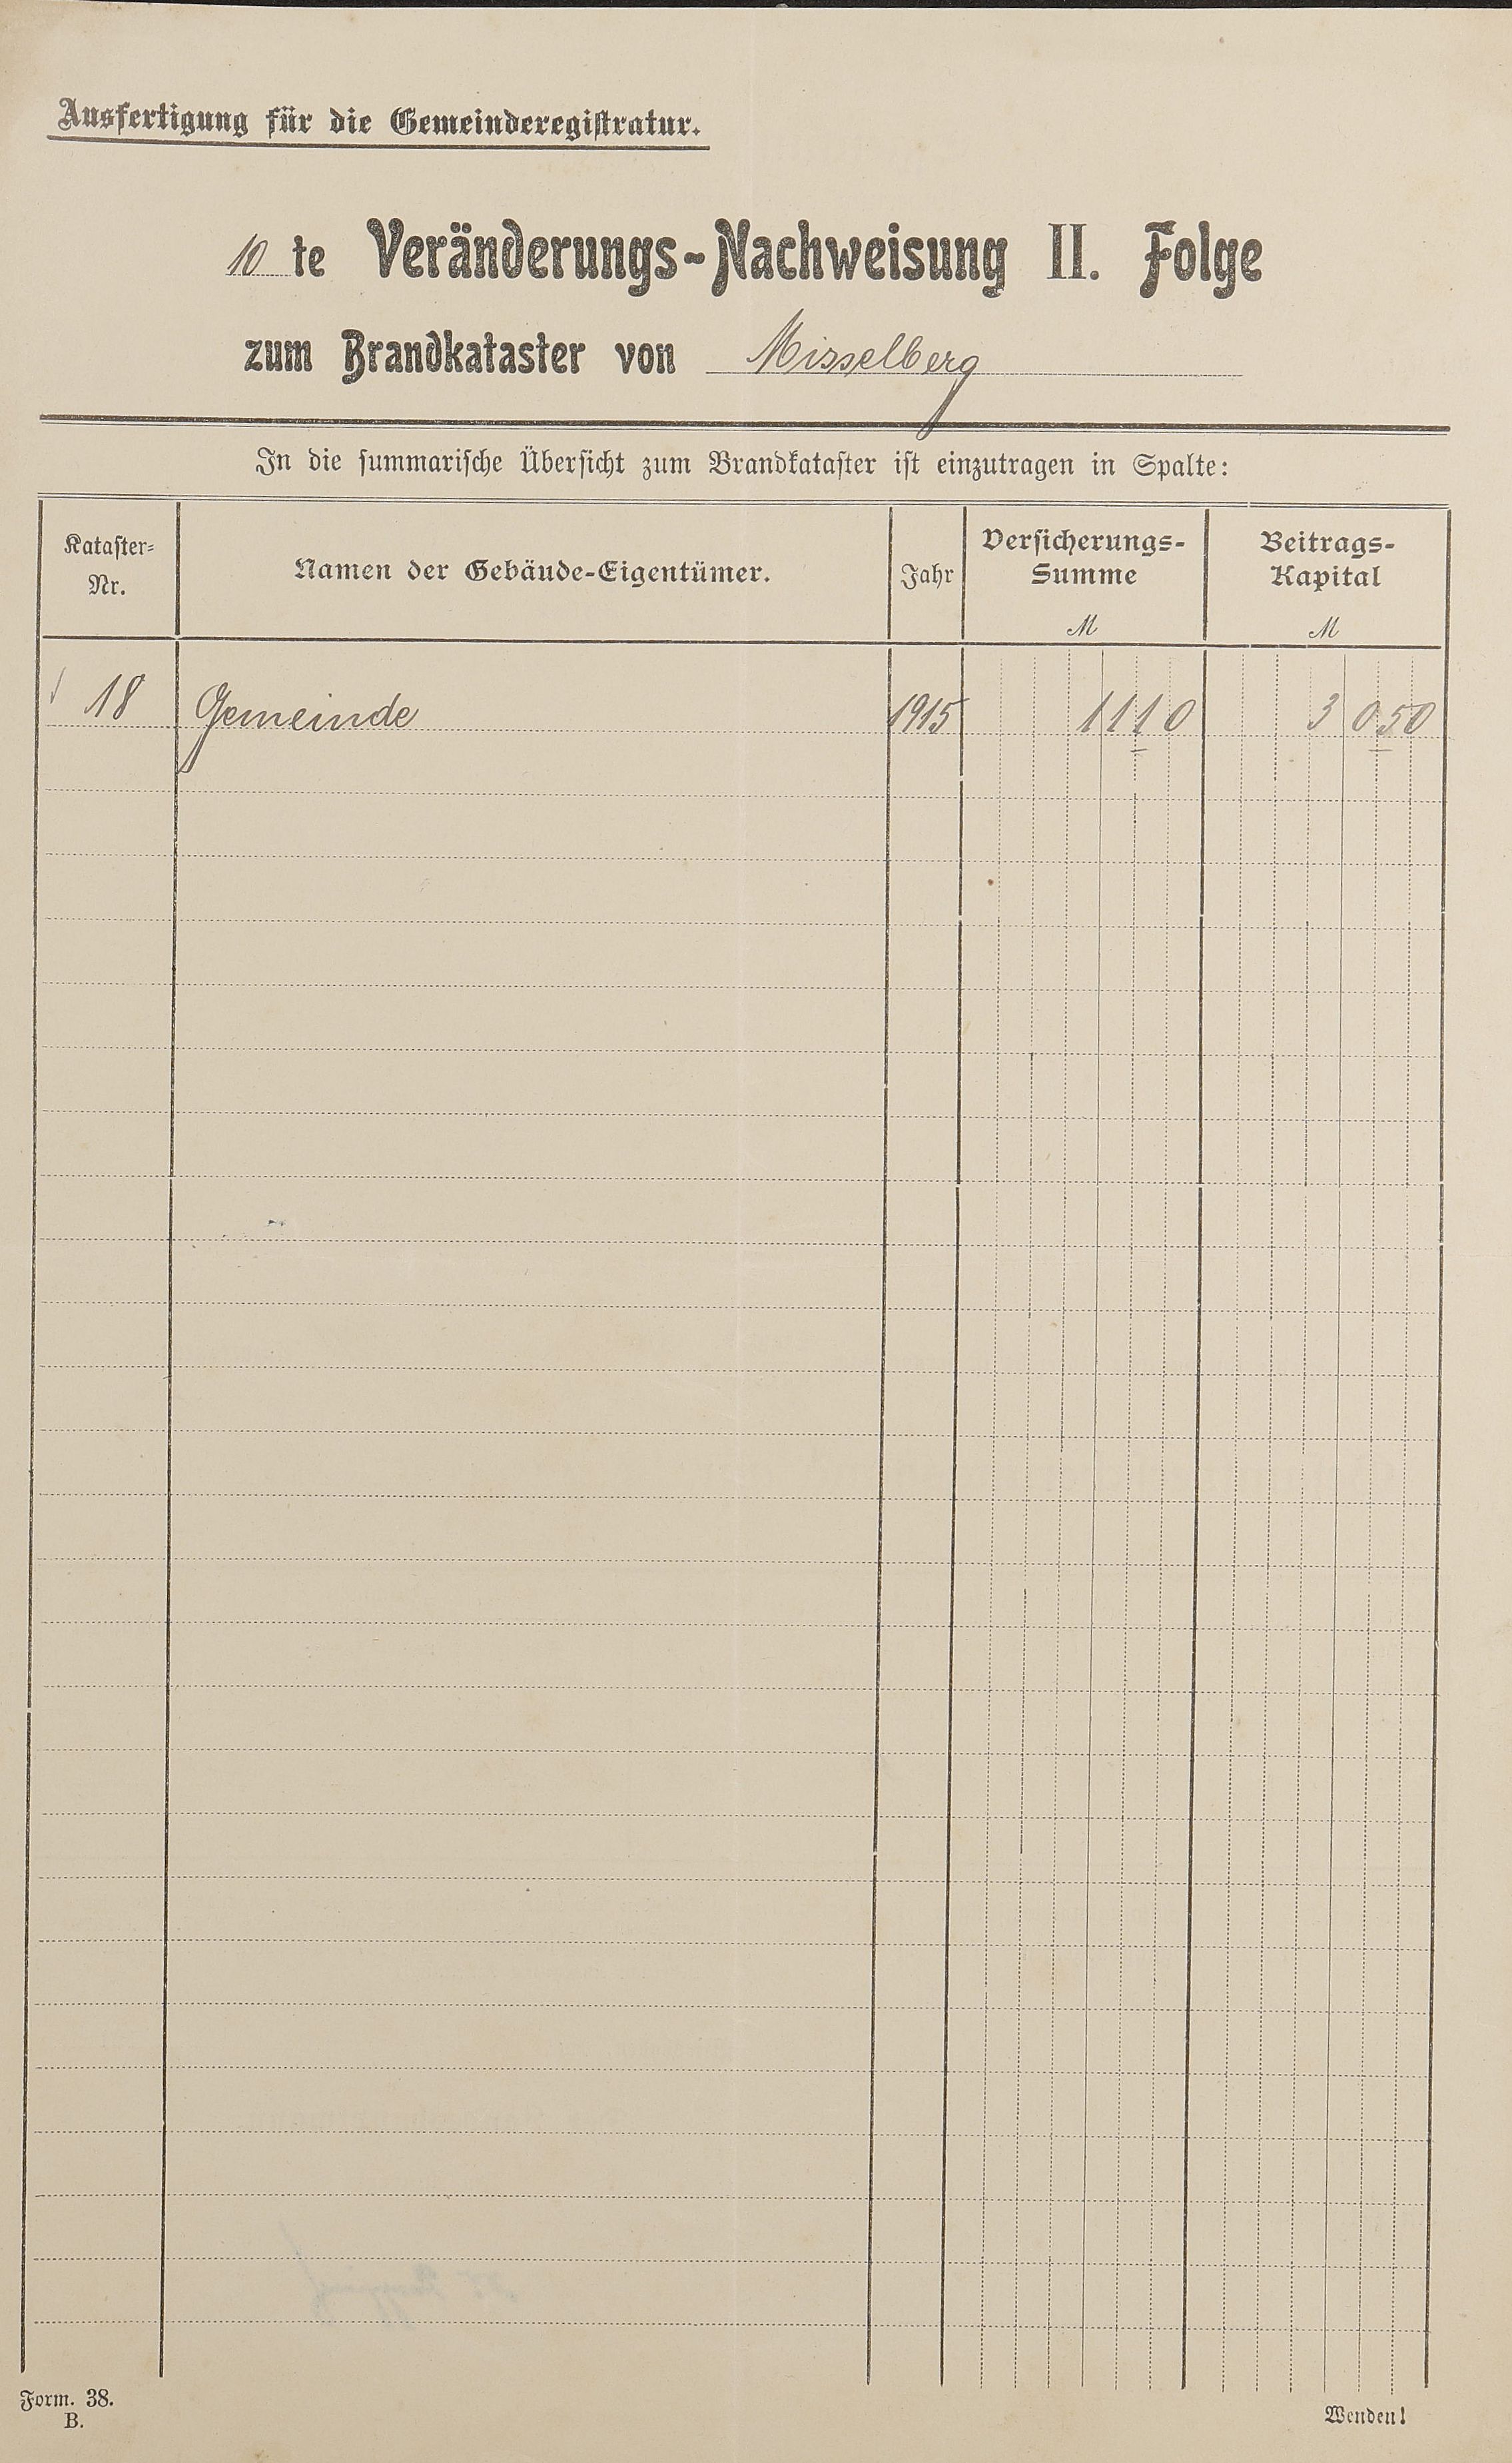 Ausfertigung für die Gemeinderegistratur.
10 te Veränderungs-Nachweisung II. Folge
zum Brandkataster von Misselberg
In die summarische Übersicht zum Brandkataster ist einzutragen in Spalte:
Kataster-
Nr.
Namen der Gebäude-Eigentümer.
Jahr
Versicherungs-
Summe
M
Beitrags-
Kapital
M
18 Gemeinde 1915 1110 3050
Form. 38.
B.
Wenden!